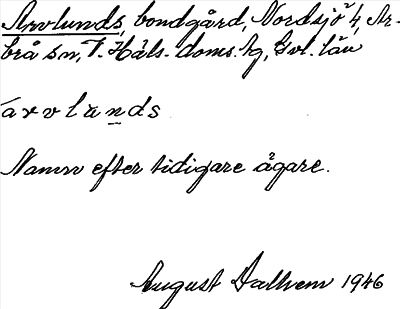 Arvlunds, bondgård, Nordsjö 4, Ar-
brå sn, V. Häls. doms. hg, Gvl. län
arvlands
Namn efter tidigare ägare.
August Dalhem 1946